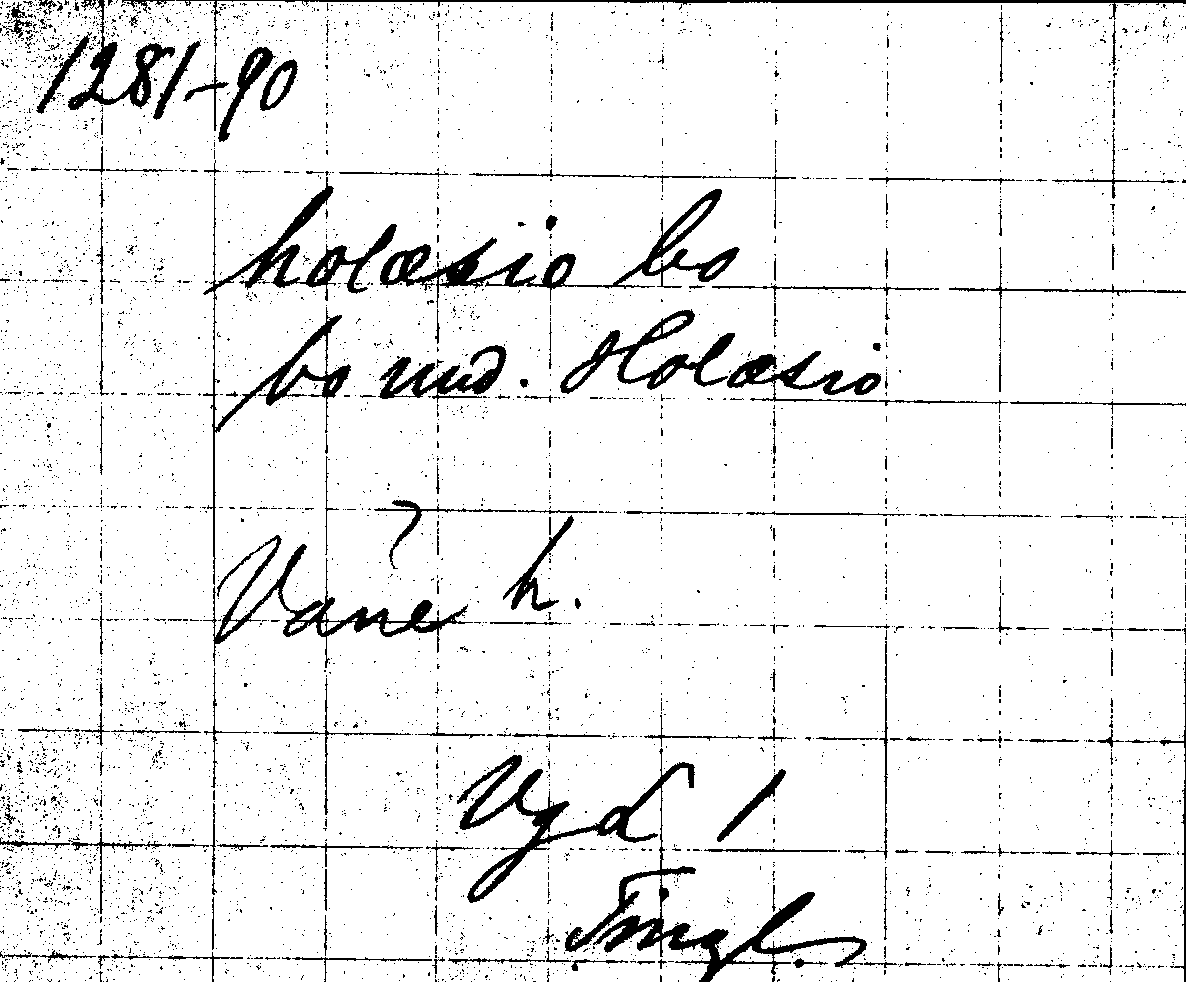 1281-90
holæsio bo
bo und. Holæsio
?
Vane h.
VgL 1
Tingl.